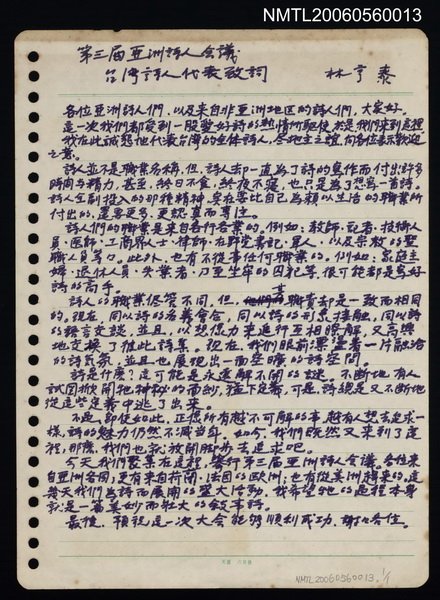 NMTL20060560013
第三屆亚洲詩人会議
台湾詩人代表致詞 林亨泰
各位亚洲詩人們，以及来自非亚洲地区的詩人們，大家好。
這一次我們都受到一股愛好詩的熱情所驅使，於是我們来到這裡，
我在此誠懇地代表台湾的全体詩人，尽地主之誼，向各位表示歡迎
之意。
詩人並不是職業名称，但，詩人却一直為了詩的焦作而付出許多
時間与精力，甚至，終日不食，終夜不寢，也只是為了想寫一首詩。
詩人全副投入的那种精神，实在要比自己為賴以生活的職業所
付出的，還要更多，更認真而專注。
詩人們的職業是来自各行各業的。例如：教師、記者、技術人
員、医師、工商界人士、律師、在野党書記、軍人、以及宗教的聖
職人員等々。此外，也有不從事任何職業的。例如：家庭主
婦、退休人員、失業者，乃至坐牢的囚犯等，很可能都是寫好
詩的高手。
詩人的職業儘管不同，但，其職責却是一致而相同
的。現在，同以詩的名義会合，同以詩的形象接触，同以詩
的語言交談，並且，以想像力来進行互相瞭解，又高興
地交換了彼此詩集。現在，我們眼前漂盪着一片融洽
的詩氛氛，並且也展現出一面空曠的詩空間。
詩是什麼？這可能是永遠解不開的謎。不断地有人
試圖掀開牠神秘的面紗，猛下定義，可是，詩總是又不断地
從這些定義中逃了出来。
不過，即使如此，正像所有越不可解的事，越有人想去追求一
樣，詩的魅力仍然不減当年。如今，我們既然又来到了這
裡，那麼，我們也就放開脚步去追求吧。
今天，我們聚集在這裡，舉行第三屆亚洲詩人会議。各位来
自亚洲各国，更有来自荷蘭、法国的欧洲；也有從美洲趕来的，這
幾天我們為詩而展開的盛大活動，我希望牠的過程本身
就是一篇美妙而壯大的敘事詩。
最後，預祝這一次大会能夠順利成功，謝々各位。
NMTL20060560013 1/1